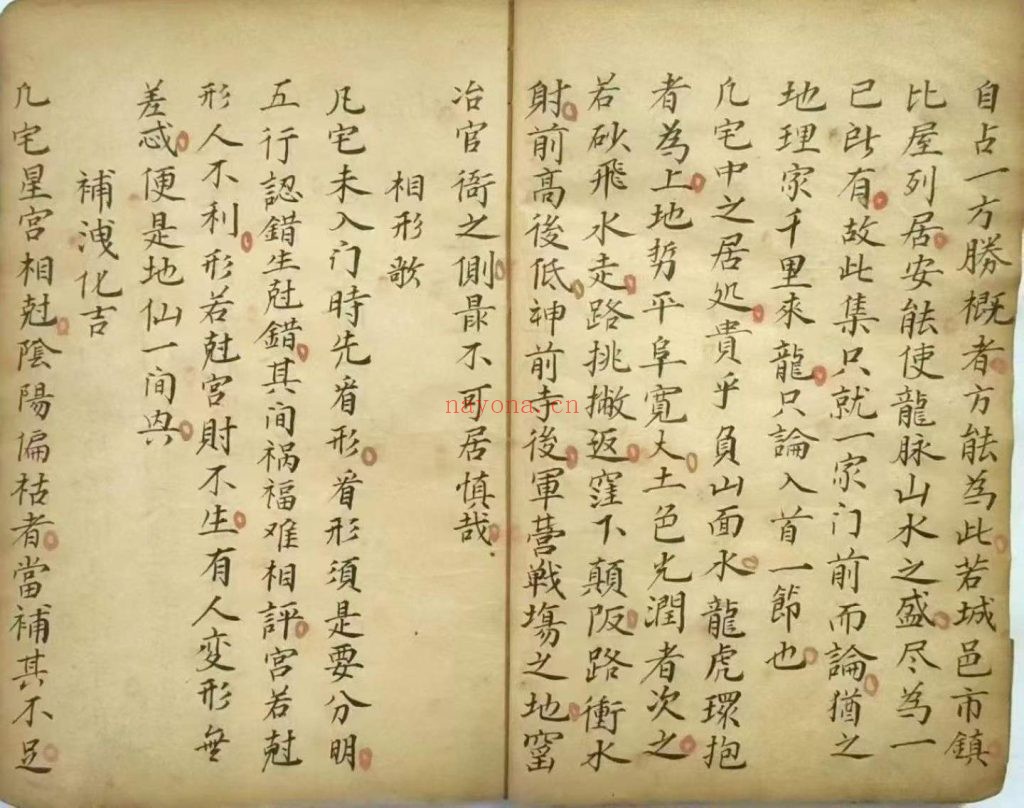 自占一方勝概者方能為此若城邑市鎮
比屋列居安能使龍脉山水之盛尽為一
已所有故此集只就一家门前而論猶之
地理家千里來龍只論入首一節也
凡宅中之居処貴乎負山面水龍虎環抱
者為上地势平阜寛大土色光潤者次之
若砂飛水走路挑撇返窪下顛阪路衝水
射前高後低神前寺後軍营戦塲之地窑
冶官衙之側最不可居慎哉
相形歌
凡宅未入门時先看形看形須是要分明
五行認錯生尅錯其间禍福难相評宫若尅
形人不利形若尅宫財不生有人変形無
差忒便是地仙一间與
補洩化吉
凡宅星宫相尅陰陽偏祜者當補其不足
nayona.cn